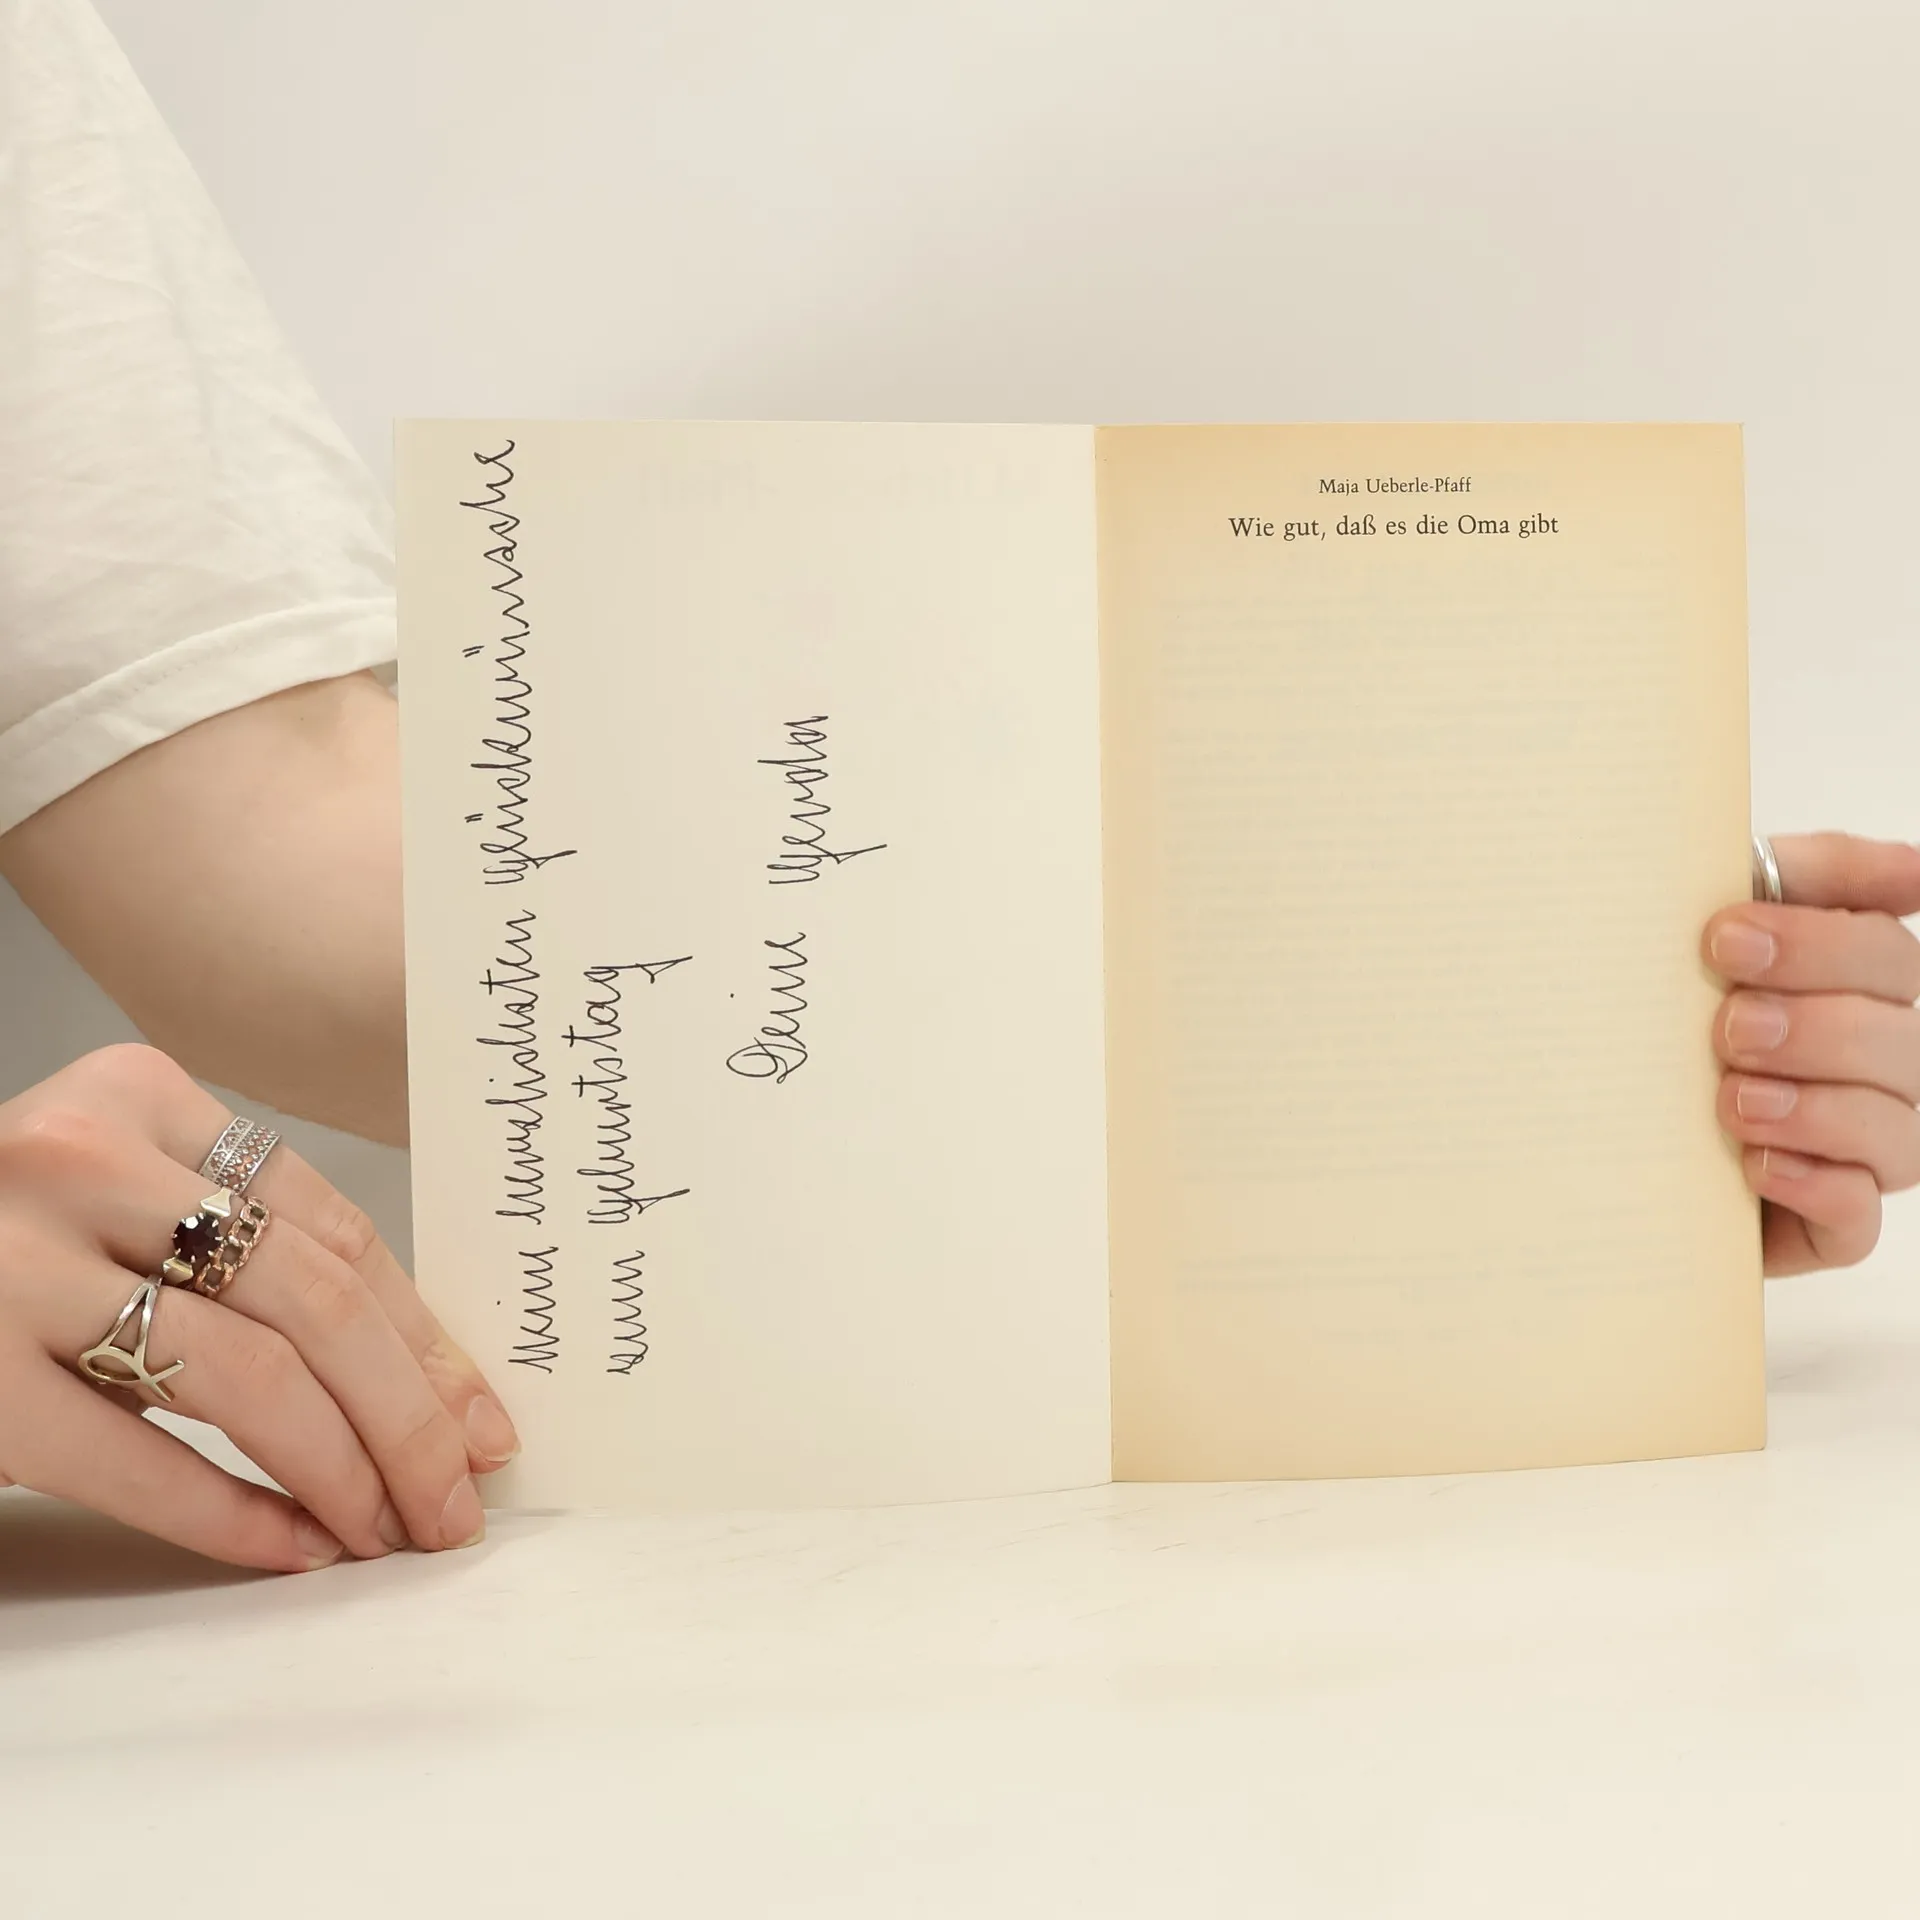 Meine herzlichsten Glückwünsche
zum Geburtstag
Deine Gerda
Maja Ueberle-Pfaff
Wie gut, daß es die Oma gibt